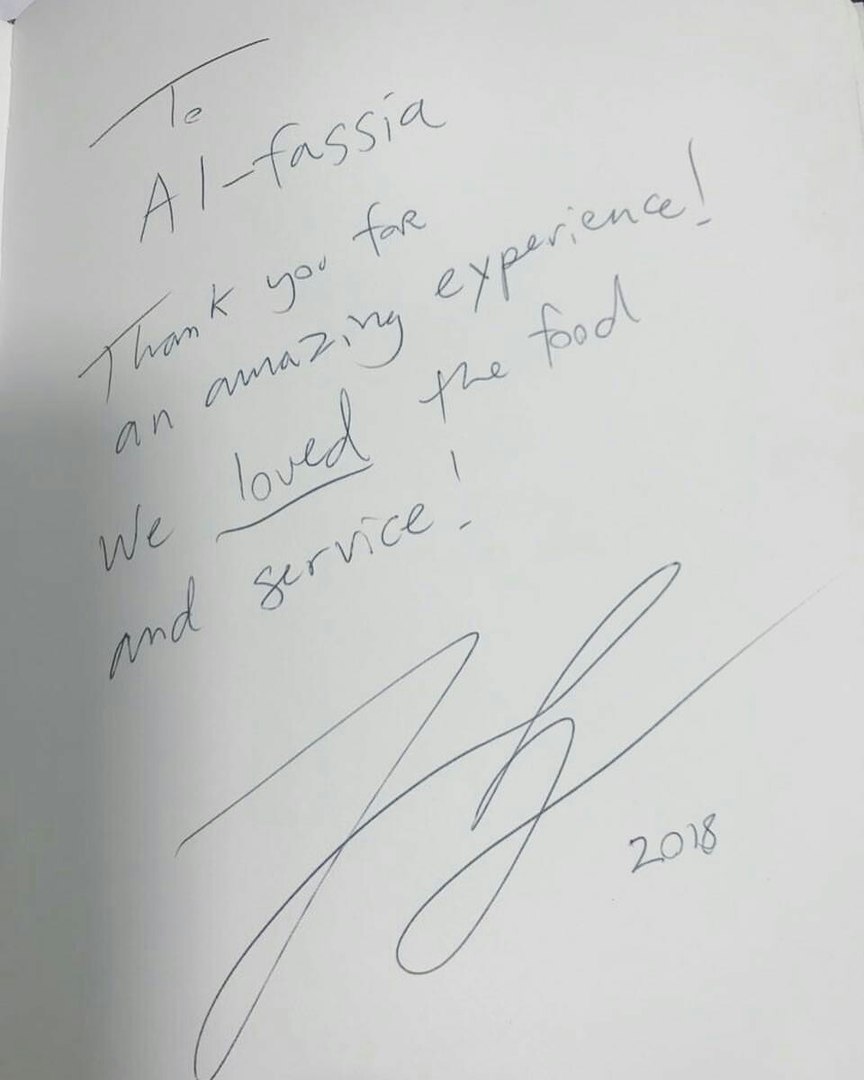 To
Al-fassia
Thank you for
an amazing experience!
We loved the food
and service!
2018